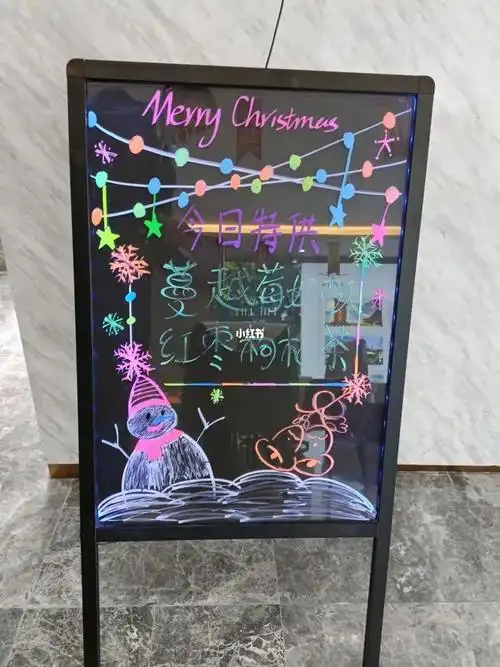 Merry Christmas
今日特供
蔓越莓奶
小红书
红枣枸杞茶